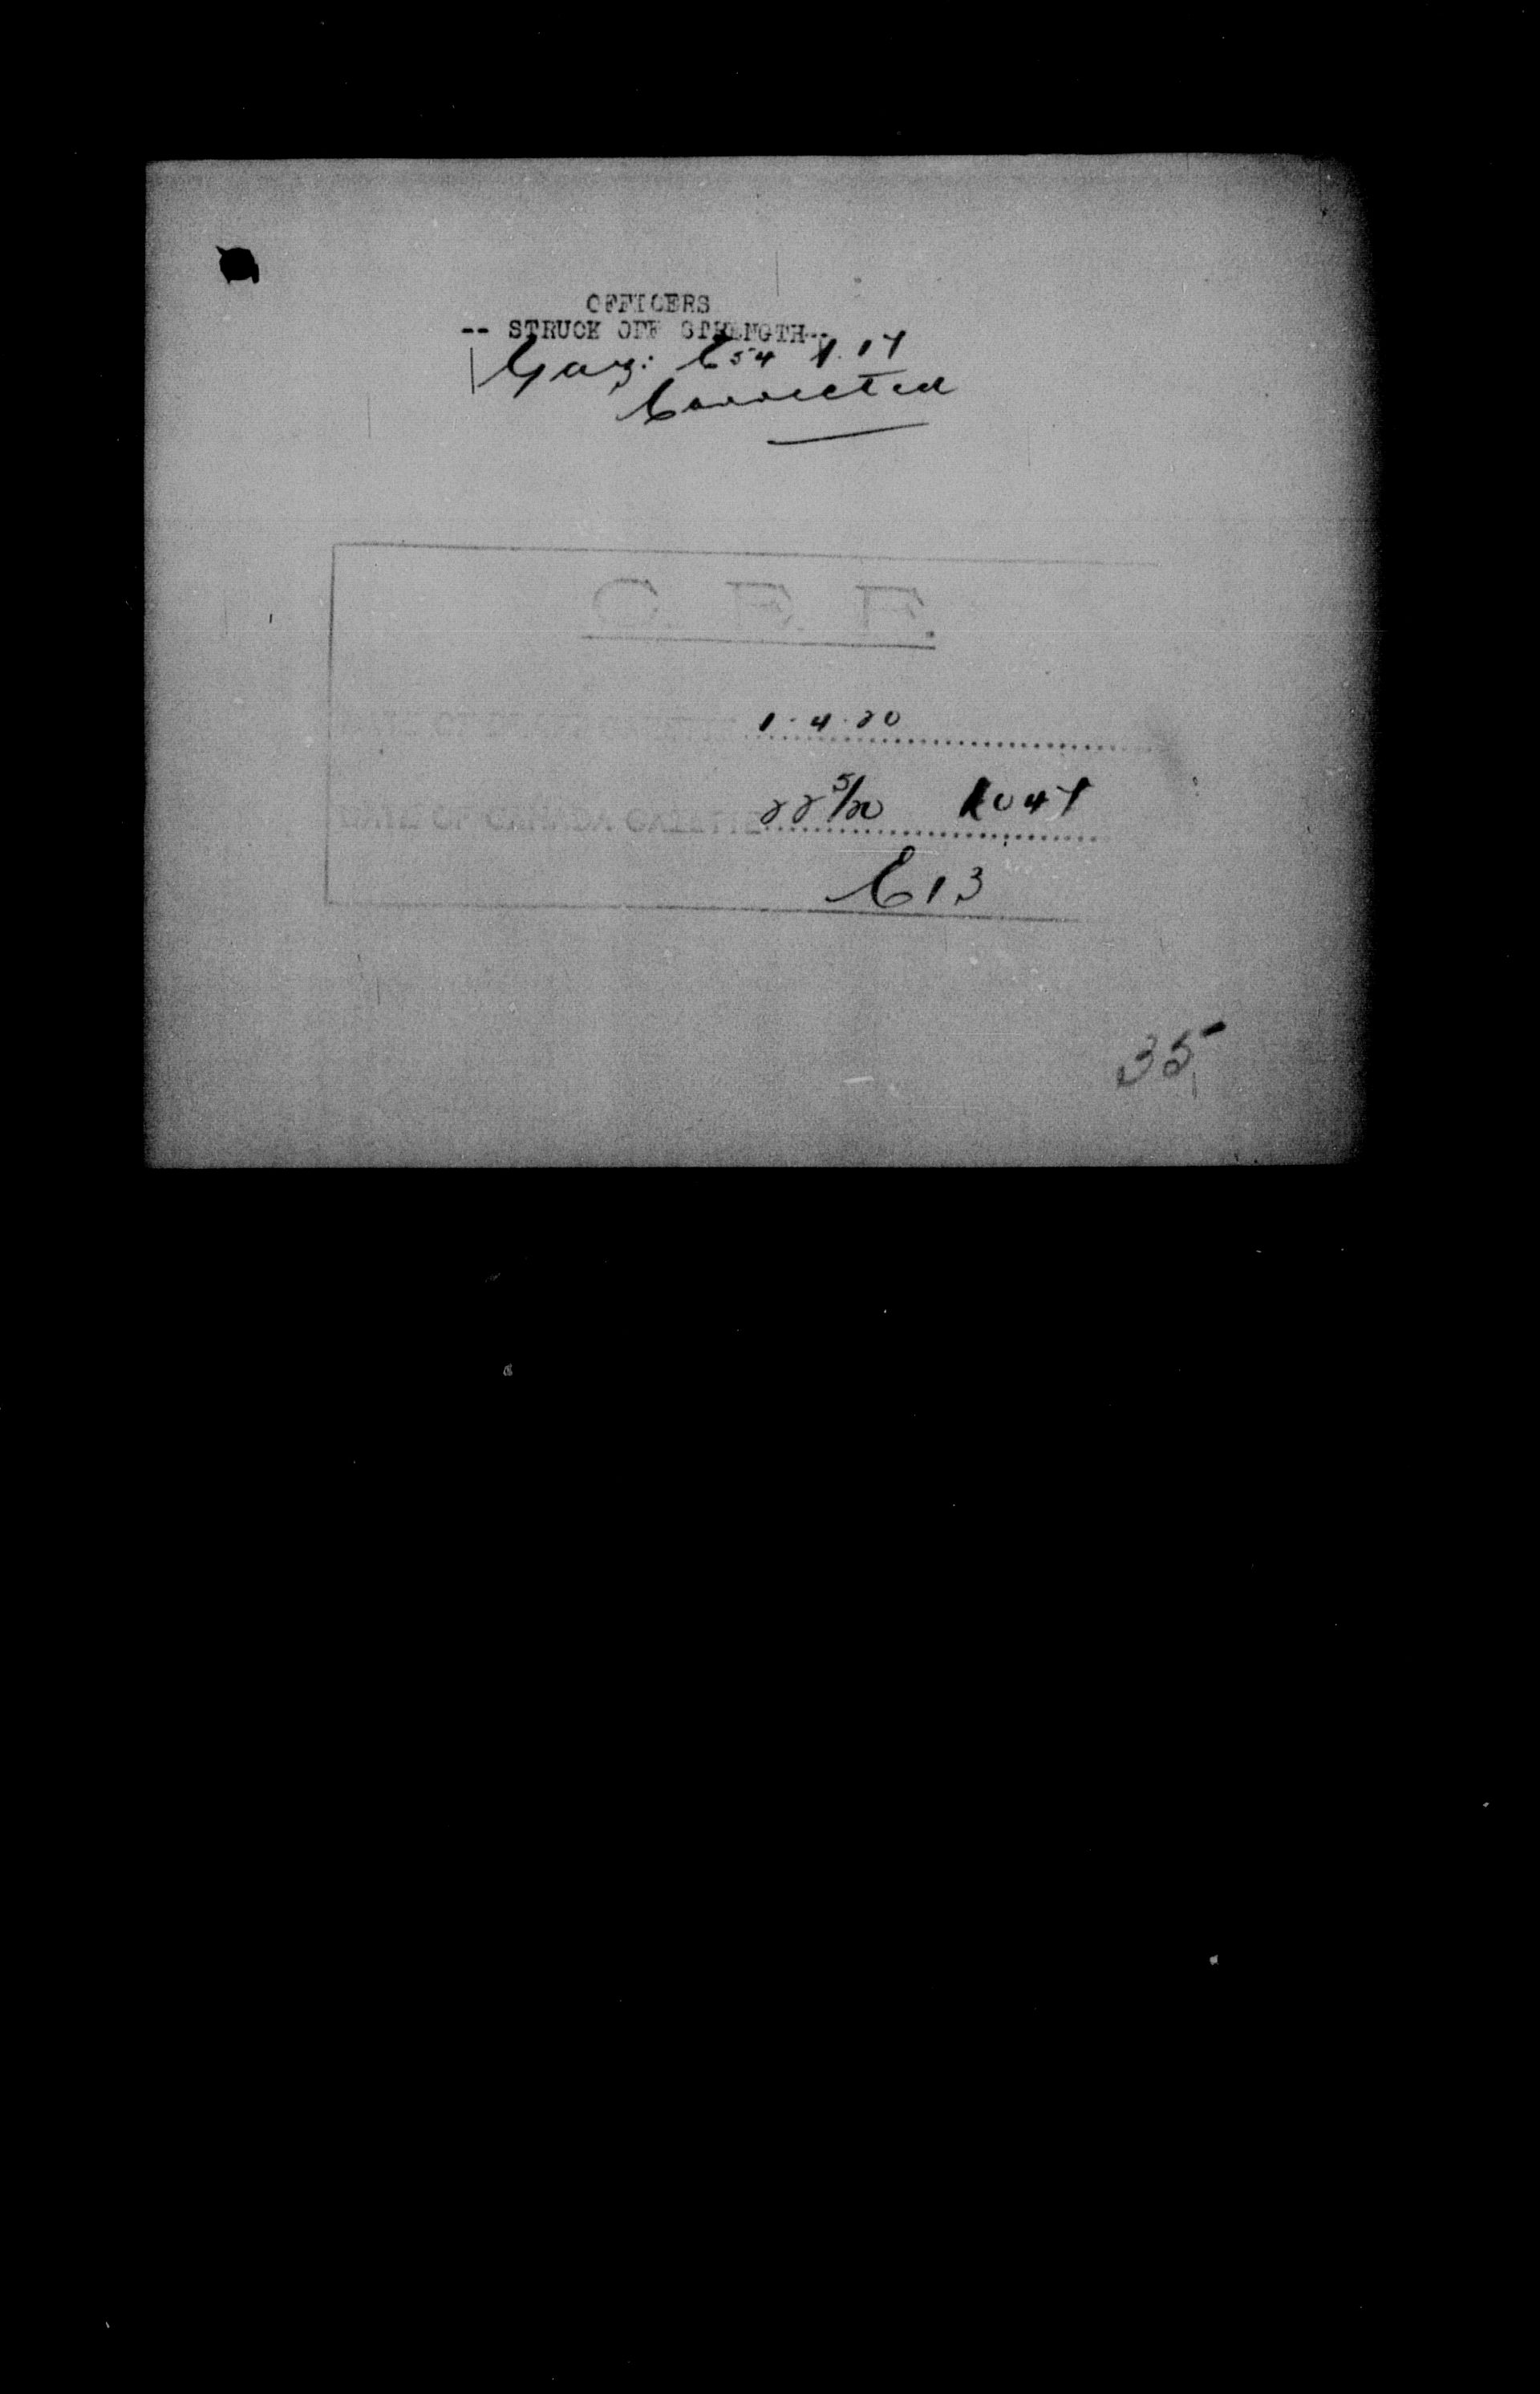 OFFICERS
-- STRUCK OFF STRENGTH--
Gaz: C54
Corrected
C. E. F.
DATE OF DRAFT GAZETTE 1.4.20
DATE OF CANADA GAZETTE 22 5/20
C13
35